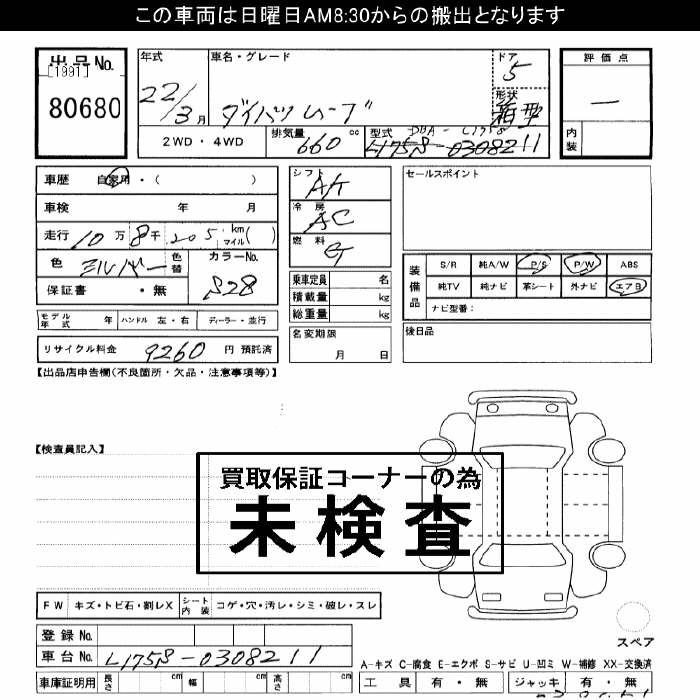 この車両は日曜日AM8:30からの搬出となります
出品No.
[1991]
80680
年式
22/3月
車名・グレード
ダイハツ ムーブ
ドア
5
形状
箱型
評価点
内装
2WD・4WD
排気量
660 cc
型式
DBA-L175S
L175S-0308211
車歴 自家用・( )
車検 年 月
走行 10万8千205 km マイル( )
色 シルバー 色替 カラーNo.
保証書 ・無 S28
シフト
AT
冷房
AC
燃料
G
乗車定員 名
積載量 kg
総重量 kg
名変期限
月 日
セールスポイント
装備品
S/R 純A/W P/S P/W ABS
純TV 純ナビ 革シート 外ナビ エアB
ナビ型番:
後日品
モデル年式 年 ハンドル 左・右 ディーラー・並行
リサイクル料金 9260 円 預託済
【出品店申告欄(不良箇所・欠品・注意事項等)】
【検査員記入】
買取保証コーナーの為
未検査
FW キズ・トビ石・割レX シート内装 コゲ・穴・汚レ・シミ・破レ・スレ
登録No.
車台No. L175S-0308211
車庫証明用 長さ cm 幅 cm 高さ cm
スペア
A-キズ C-腐食 E-エクボ S-サビ U-凹ミ W-補修 XX-交換済
工具 有・無 ジャッキ 有・無